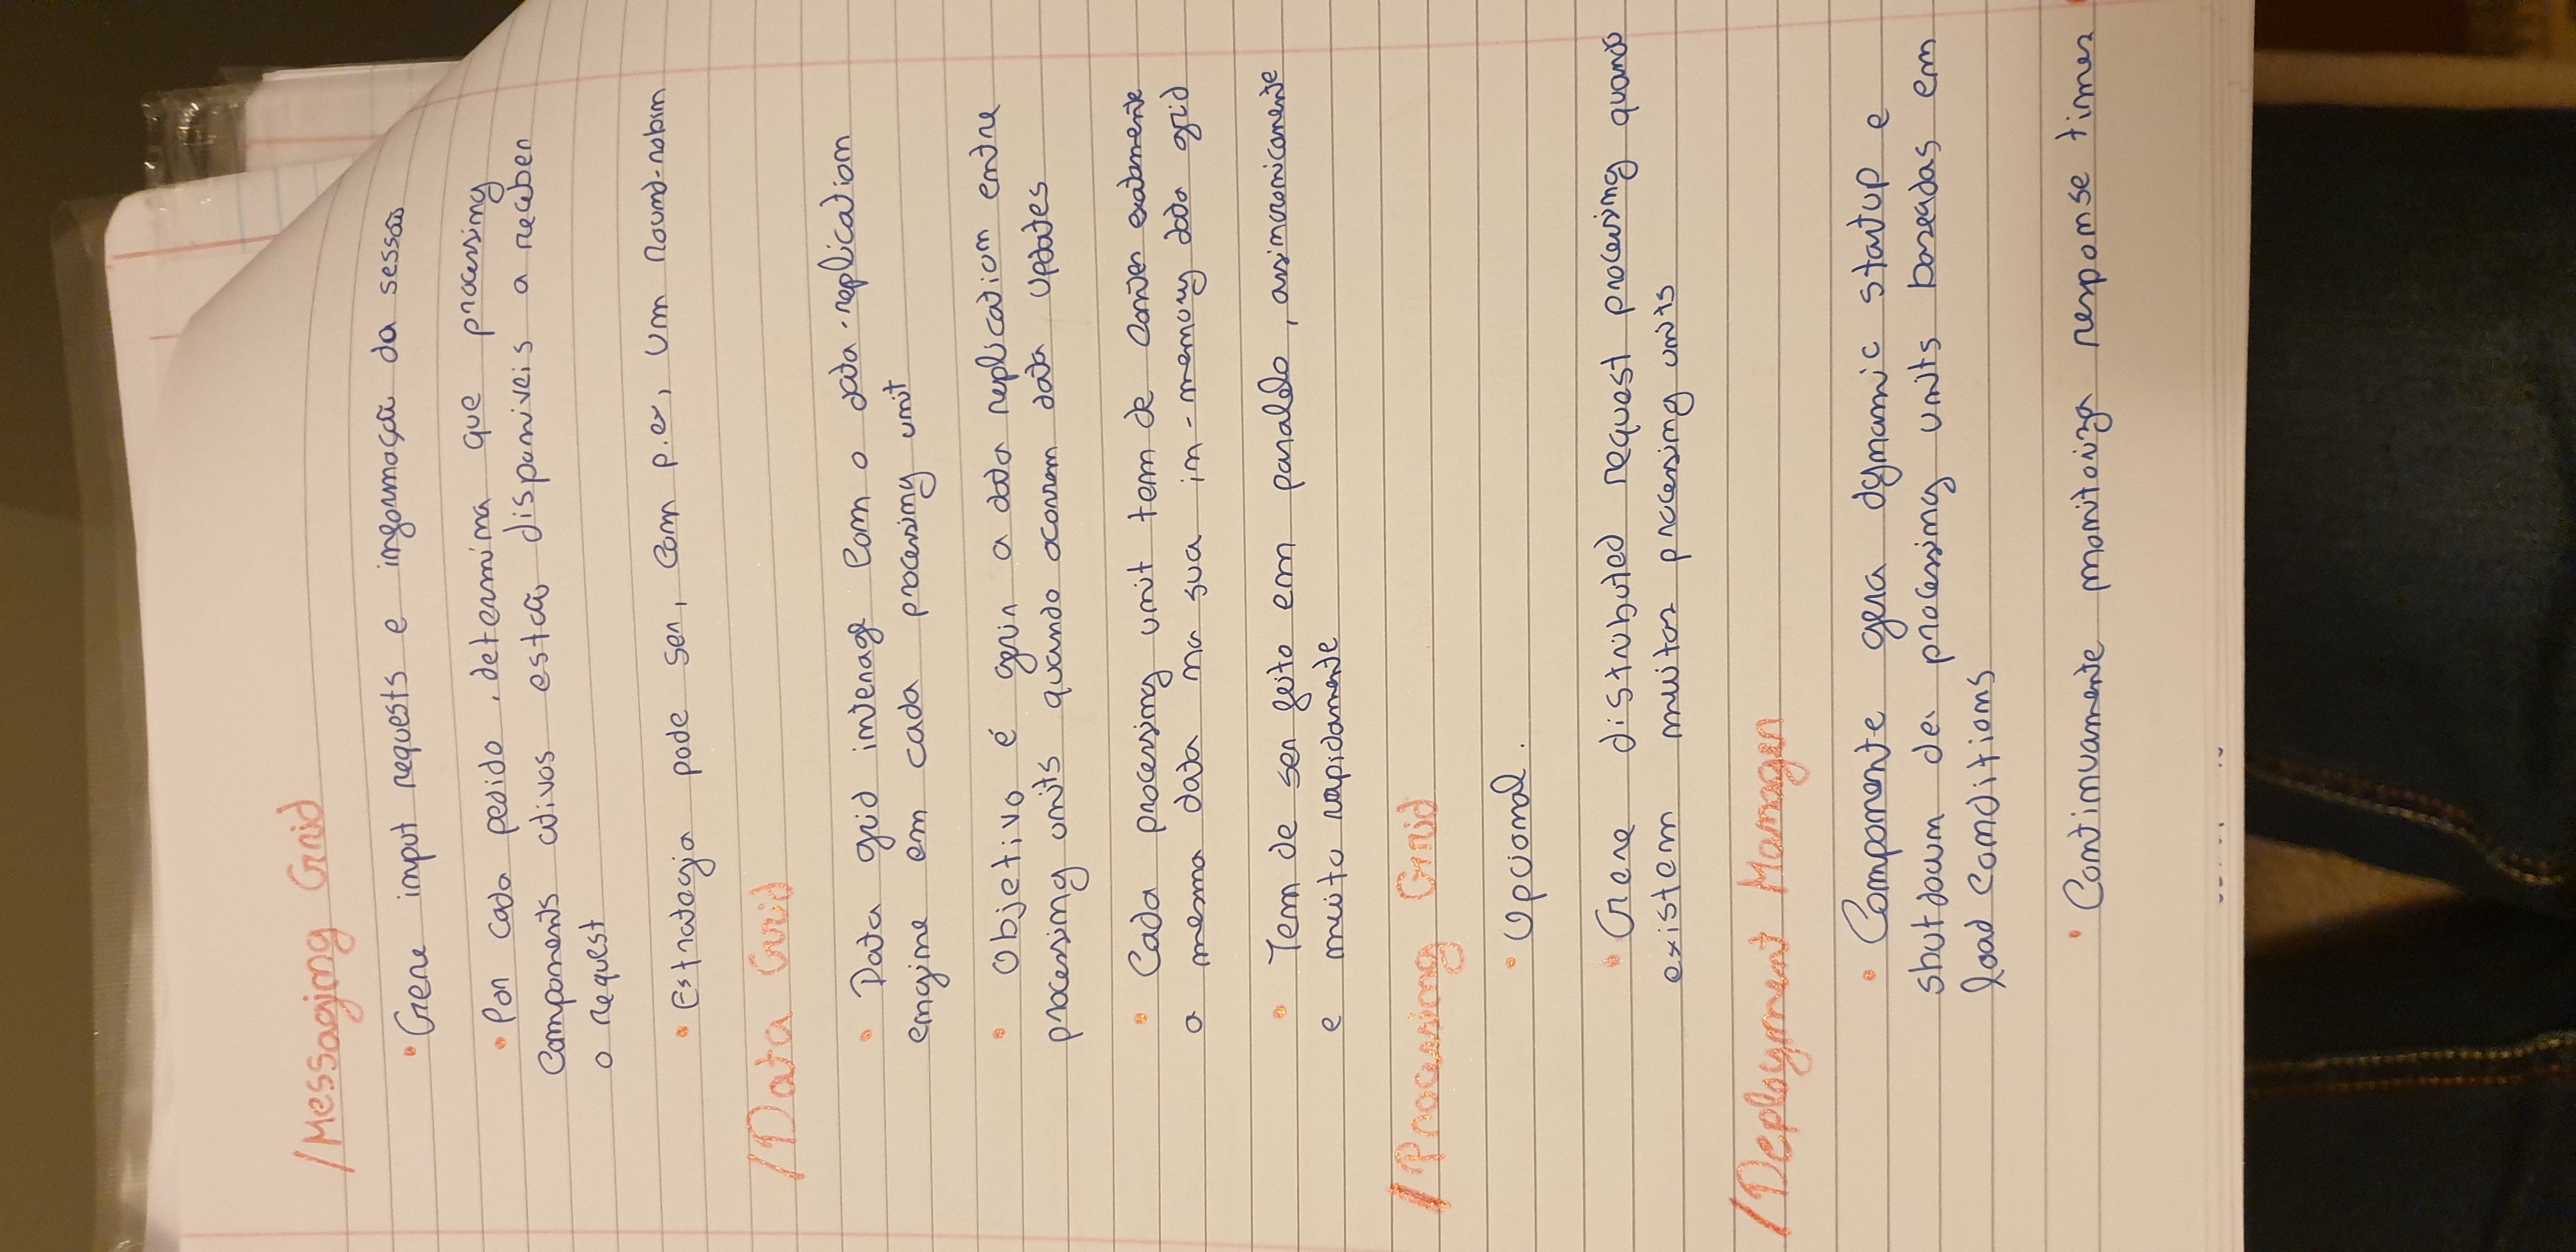 /Messaging Grid
• Gere input requests e informação da sessão
• Por cada pedido, determina que processing
Components ativos estão disponiveis a receber
o request
• Estrategia pode ser, com p.ex, um round-robin
/Data Grid
• Data grid interage com o data-replication
engine em cada processing unit
• Objetivo é gerir a data replication entre
processing units quando ocorrem data updates
• Cada processing unit tem de conter exatamente
a mesma data na sua in-memory data grid
• Tem de ser feito em paralelo, assincronicamente
e muito rapidamente
/Processing Grid
• Opcional.
• Gere distributed request processing quando
existem muitas processing units
/Deployment Manager
• Componente gera dynamic startup e
shutdown de processing units baseadas em
load conditions
• Continuamente monitoriza response times